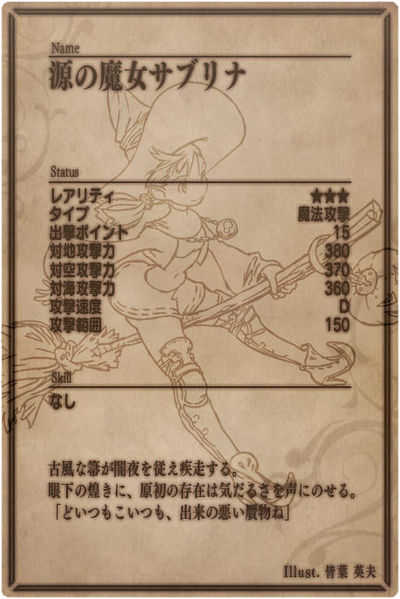 Name
源の魔女サブリナ
Status
レアリティ ★★★
タイプ 魔法攻撃
出撃ポイント 15
対地攻撃力 380
対空攻撃力 370
対海攻撃力 360
攻撃速度 D
攻撃範囲 150
Skill
なし
古風な箒が闇夜を従え疾走する。
眼下の煌きに、原初の存在は気だるさを声にのせる。
「どいつもこいつも、出来の悪い贋物ね」
Illust. 皆葉 英夫